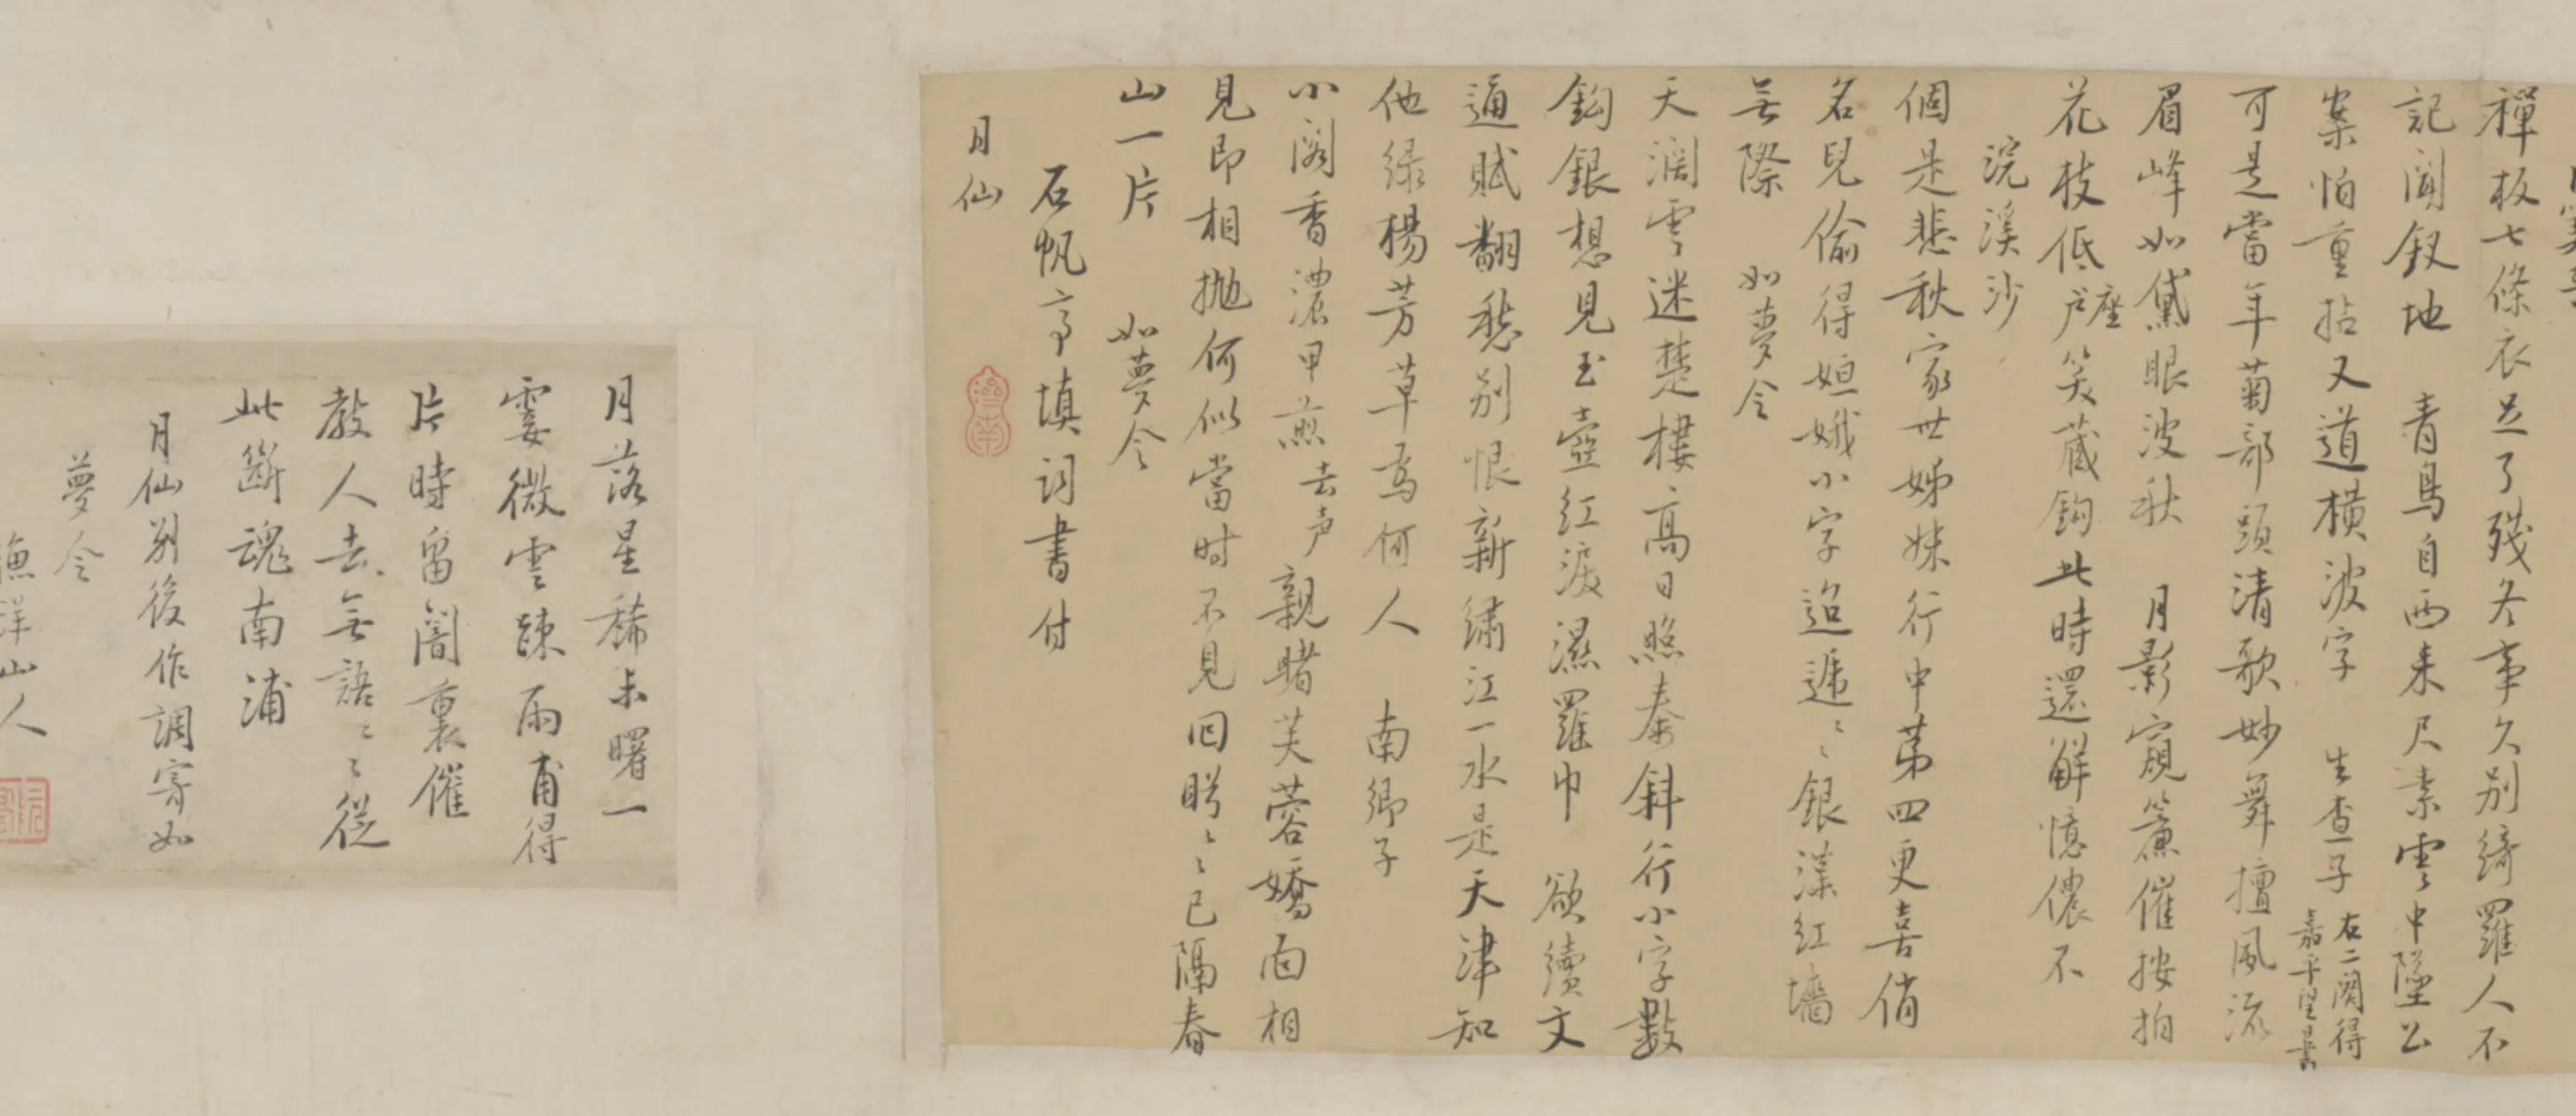 禪板七條衣足了殘冬事久別綺羅人不
記閒釵地　青鳥自西來尺素雲中墜公
案怕重拈又道橫波字　生查子
右二闋得
嘉平望書
可是當年菊部頭清歌妙舞擅風流
眉峰如黛眼波秋　月影窺簾催按拍
花枝低戶座笑藏鈎此時還解憶儂不
浣溪沙
個是悲秋家世姊妹行中第四更喜俏
名兒偷得姮娥小字迢遞〻〻銀漢紅墻
無際　如夢令
天濶雲迷楚樓高日照秦斜行小字數
鈎銀想見玉壺紅淚濕羅巾　欲續文
通賦翻愁別恨新繡江一水是天津知
他綠楊芳草爲何人　南鄉子
小閣香濃甲煎去声親睹芙蓉嬌面相
見即相拋何似當时不見回眸〻〻已隔春
山一片　如夢令
石帆亭填詞書付
月仙
月落星稀未曙一
霎微雲疎雨甫得
片時留闇裏催
教人去無語〻〻從
此斷魂南浦
月仙別後作調寄如
夢令
漁洋山人